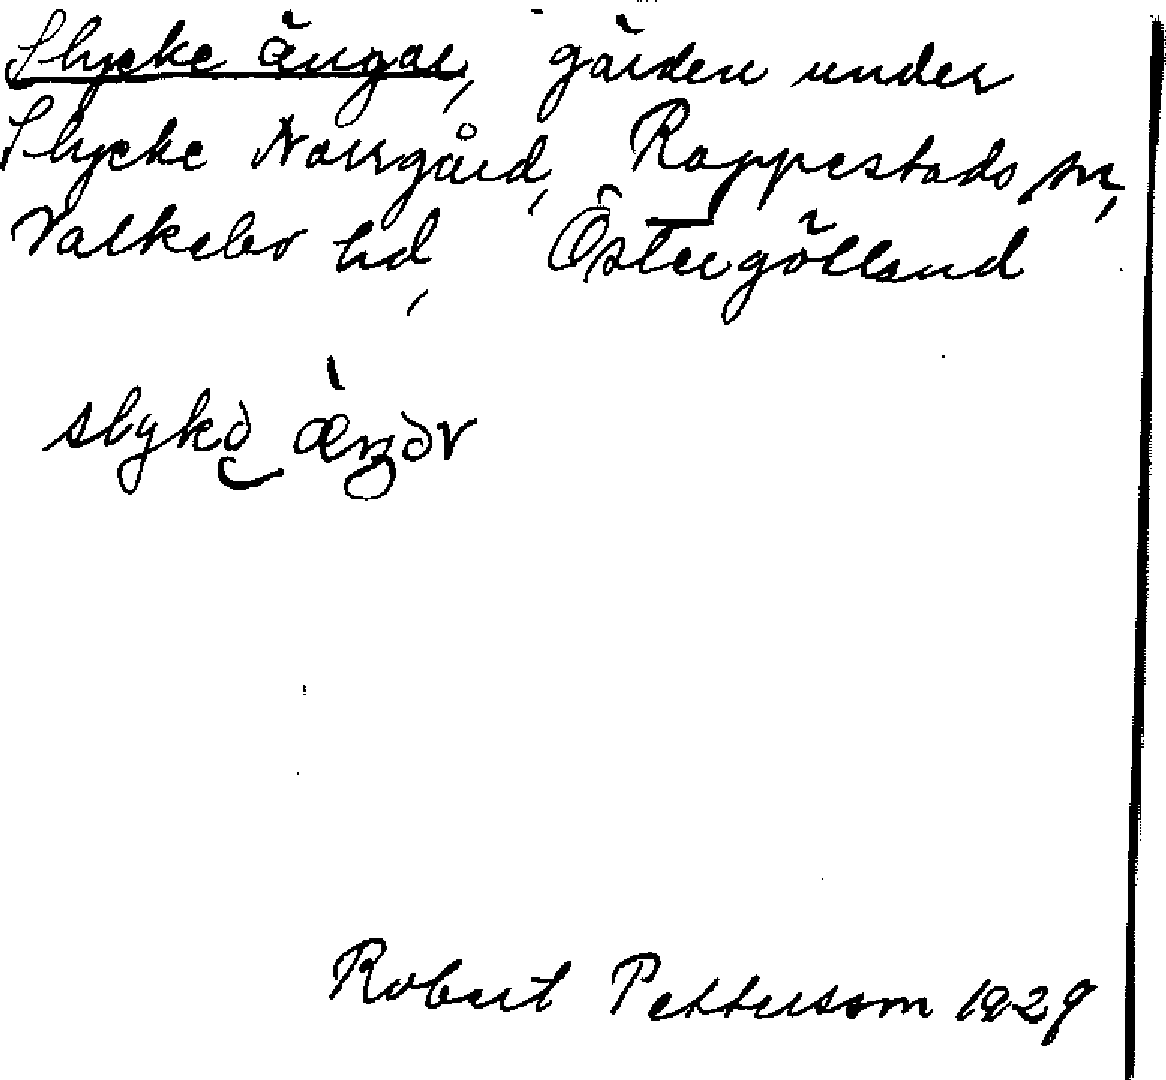 Slycke ängar, gärden under
Slycke Norrgård, Rappestads sn,
Valkebo hd, Östergötland
slykə æŋər
Robert Pettersson 1929